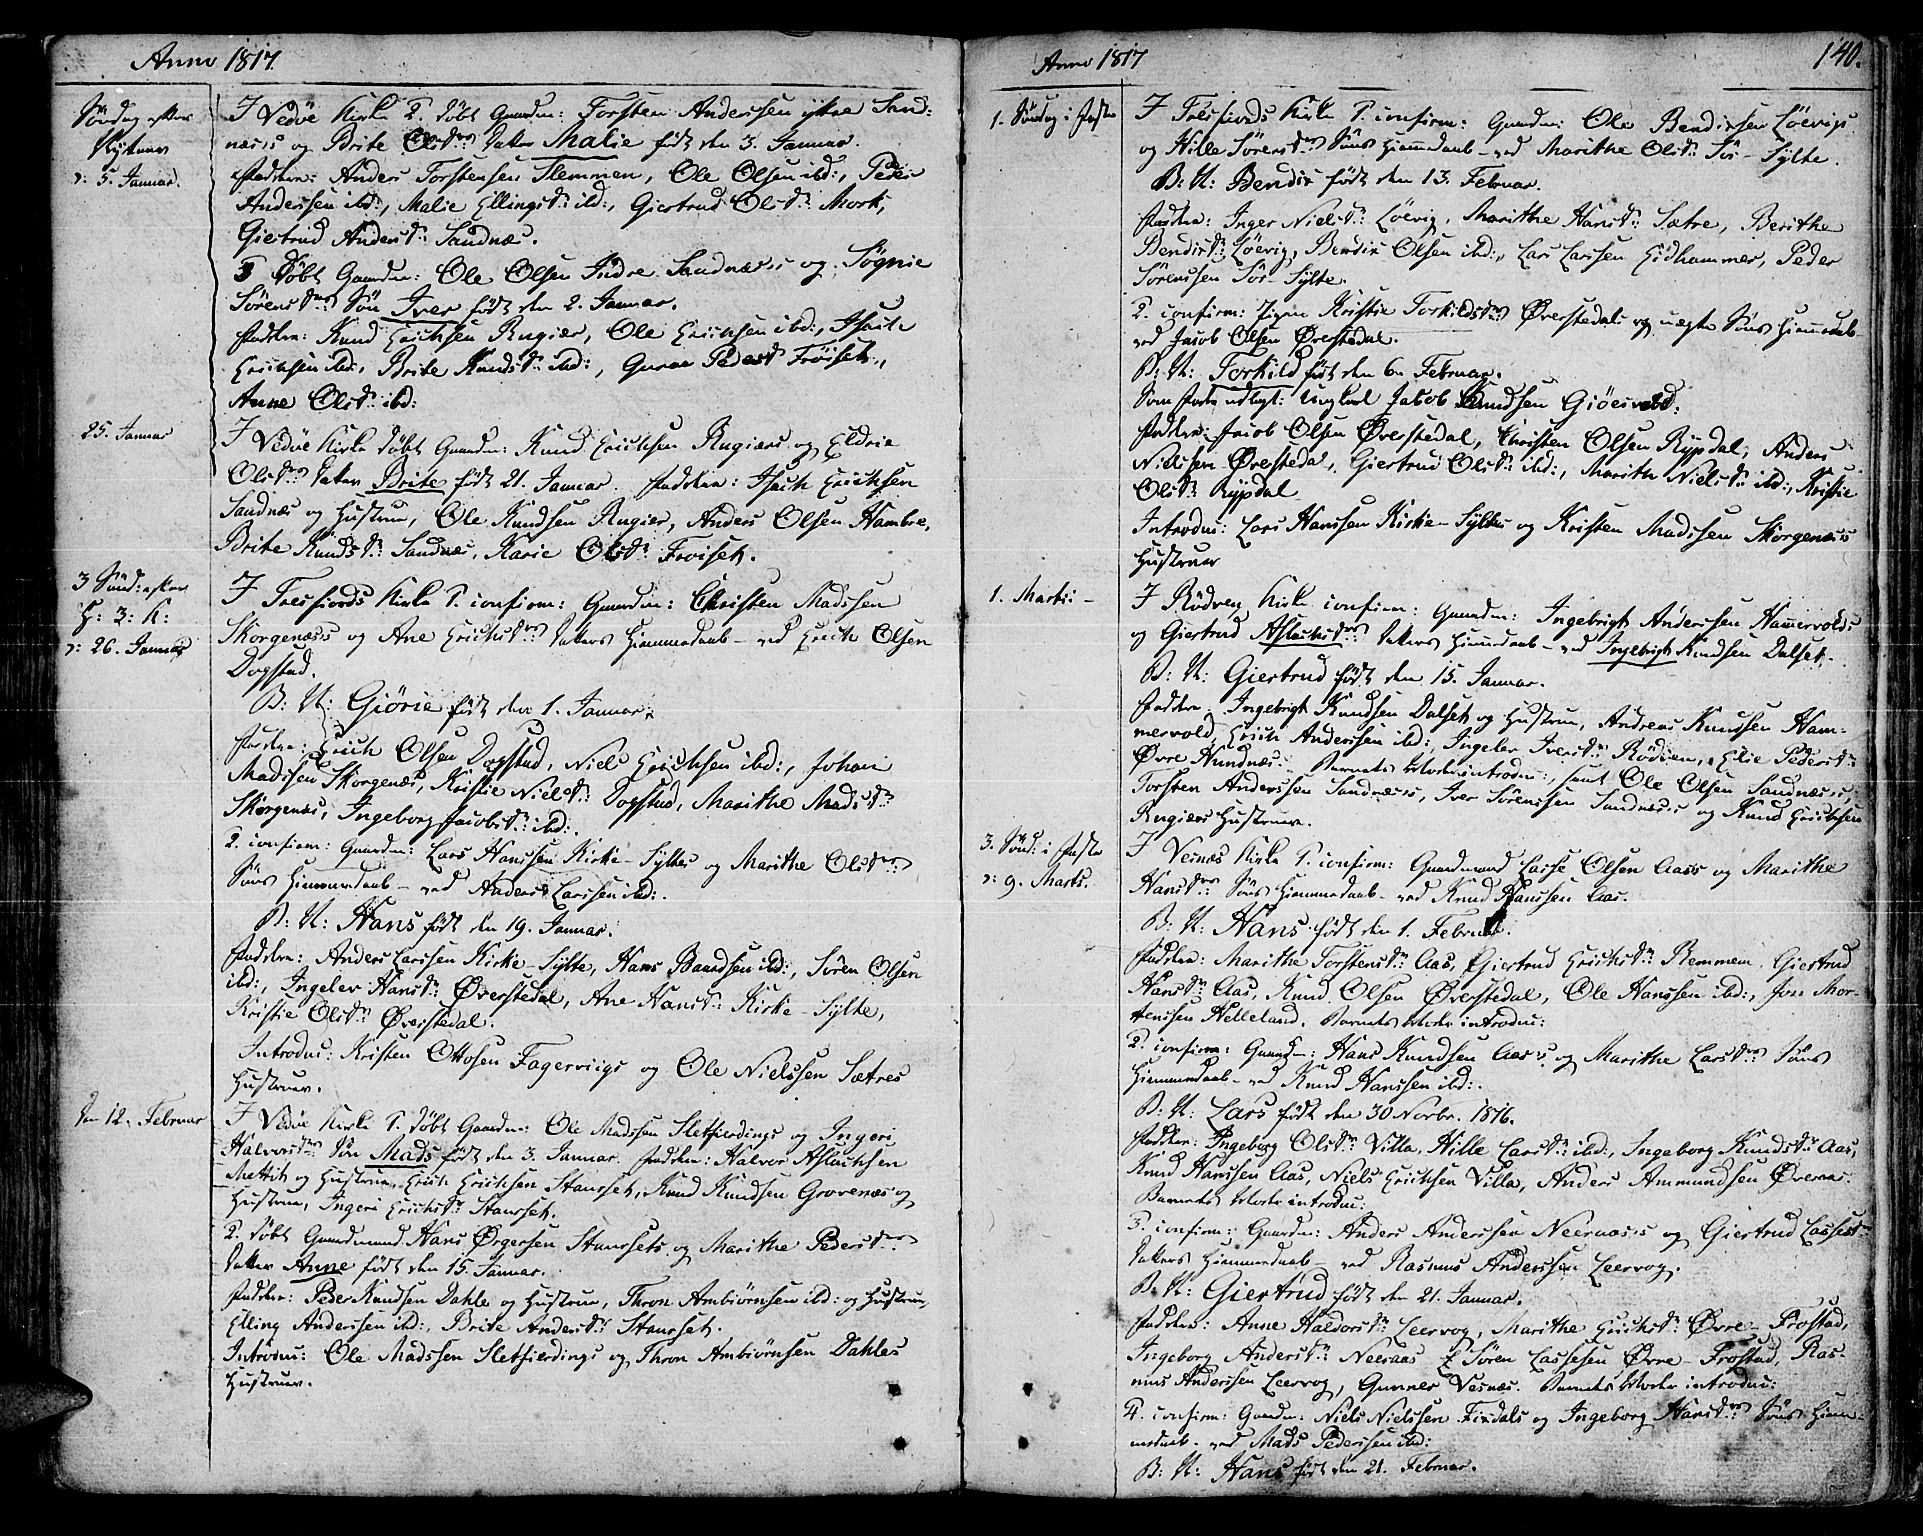 Anno 1817.
Søndag efter
Nytaar
ɔ: 5. Januar.
I Vedøe Kirke 1. døbt Gaardm: Torsten Anderssen ytre Sand-
næss og Brite Olsdrs Datter Malie født den 3. Januar.
Faddere: Anders Torstensen Stemmen, Ole Olsen ibd:, Peder
Anderssen ibd:, Malie Ellingsdr: ibd:, Giertrud Olsdr: Mork,
Giertrud Andersdr: Sandnæs.
døbt Gaardm: Ole Olsen Indre Sandnæss og Søgnie
Sørensdrs Søn Iver født den 2. Januar.
Faddere: Knud Erichsen Rugiær, Ole Erichsen ibd:, Isach
Erichsen ibd:, Brite Knudsdr: ibd:, Guroe Pedersdr Frøiset,
Anne Olsdr: ibd:
25. Januar
I Vedøe Kirke døbt Gaardm: Knud Erichsen Rugiærs og Eldrie
Olsdrs Datter Brite født 21. Januar. Faddere: Isach Erichsen
Sandnæs og Hustrue, Ole Knudsen Rugier, Anders Olsen Hambre,
Brite Knudsdr: Sandnæs, Karie Olsdr: Frøiset.
3 Sønd: efter
H: 3: K:
ɔ: 26. Januar
I Tresfiords Kirke 1. confirm: Gaardm: Christen Madssen
Skorgenæss og Ane Erichsdrs Datters Hiemmedaab – ved Erich Olsen
Dogstad.
B: N: Giørie født den 1. Januar.
Faddere: Erich Olsen Dogstad, Niels Erichsen ibd:, Johan
Madssen Skorgenæs, Kristie Nielsdr: Dogstad, Marithe Madsdr:
Skorgenæs, Ingeborg Jacobsdr: ibd:.
2. confirm: Gaardm: Lars Hanssen Kirke-Syltes og Marithe Olsdrs
Søns Hiemmedaab – ved Anders Larssen ibd:.
B: N: Hans født den 19. Januar.
Faddere: Anders Larssen Kirke-Sylte, Hans Baardsen ibd:, Søren Olsen
ibd:, Ingelev Hansdr: Øverstedal, Ane Hansdr: Kirke-Sylte,
Kristie Olsdr: Øverstedal.
Introdu: Kristen Ottosen Fagerviigs og Ole Nielssen Sætres
Hustruer.
den 12. Februar
I Vedøe Kirke 1. døbt Gaardm: Ole Madssen Sletfierdings og Ingeri
Halvorsdrs Søn Mads født den 3. Januar. Faddere: Halvor Aslachsen
og Hustrue, Erich Erichsen Stavset, Knud Knudsen Grovenæs og
Hustrue, Ingeri Erichsdr: Stavset.
2. døbt Gaardmand Hans Ørgersen Stavsets og Marithe Pedersdrs
Datter Anne født den 15. Januar.
Faddere: Peder Knudsen Dahle og Hustrue, Thron Ambiørnsen ibd: og Hustrue,
Elling Anderssen ibd:, Brite Andersdr: Stavset.
Introdu: Ole Madssen Sletfierdings og Thron Ambiørnsen Dahles
Hustruer.
Anno 1817
140.
1. Søndag i Faste
I Tresfiords Kirke 1. confirm: Gaardm: Ole Bendixsen Løevigs
og Hilla Sørensdrs Søns Hiemmedaab – ved Marithe Olsdr: Sør-Sylte.
B: N: Bendix født den 13. Februar.
Faddere: Inger Nielsdr: Løevig, Marithe Hansdr: Sætre, Berithe
Bendixdr: Løevig, Bendix Olsen ibd:, Lars Larssen Eidhammer, Peder
Sørenssen Sør-Sylte.
2. confirm: Pigen Kristie Torkildsdrs Øverstedals og uægte Søns Hiemmedaab
ved Jacob Olsen Øverstedal.
B: N: Torkild født den 6te Februar.
Som Fader udlagt: Ungkarl Jacob Knudsen Giøesvold.
Faddere: Jacob Olsen Øverstedal, Christen Olsen Rypdal, Anders
Nielssen Øverstedal, Giertrud Olsdr: ibd:, Marithe Nielsdr: ibd:, Kristie
Olsdr: Rypdal
Introdu: Lars Hanssen Kirke-Syltes og Kristen Madssen Skorgenæss
Hustruer
1. Marti: –
I Rødven Kirke confirm: Gaardm: Ingebrigt Anderssen Hamervolds
og Giertrud Aslachsdrs Datters Hiemmedaab – ved Ingebrigt Knudsen Dalset.
B: N: Giertrud født den 15. Januar.
Faddere: Ingebrigt Knudsen Dalset og Hustrue, Andreas Knudsen Ham-
mervold, Erich Anderssen ibd:, Ingelev Iversdr: Rødven, Elie Pedersdr:
Øvre Hundnæs. Barnets Moder introdu:, samt Ole Olsen Sandnæss,
Torsten Anderssen Sandnæss, Iver Sørenssen Sandnæss og Knud Erichsen
Rugiærs Hustruer.
3. Sønd: i Faste
ɔ: 9. Marts.
I Vesnæs Kirke 1. confirm: Gaardmand Lasse Olsen Aass og Marithe
Hansdrs Søns Hiemmedaab – ved Knud Hanssen Aas.
B: N: Hans født den 1. Februar.
Faddere: Marithe Torstensdr: Aas, Giertrud Erichsdr: Remmem, Giertrud
Hansdr: Aas, Knud Olsen Øverstedal, Ole Hanssen ibd:, Jon Mor-
tenssen Helleland. Barnets Moder introdu:
2. confirm: Gaardm: Hans Knudsen Aass og Marithe Larsdrs Søns
Hiemmedaab – ved Knud Hanssen ibd:.
B: N: Lars født den 30 Novbr. 1816.
Faddere: Ingeborg Olsdr: Villa, Hille Larsdr: ibd:, Ingeborg Knudsdr: Aas,
Knud Hanssen Aas, Niels Erichsen Villa, Anders Ammundsen Øveraas.
Barnets Moder introdu:
3. confirm: Gaardm: Anders Anderssen Neeraas's og Giertrud Lassesdr
Datters Hiemmedaab – ved Rasmus Anderssen Leervog.
B: N: Giertrud født den 21. Januar.
Faddere: Anne Haldorsdr: Leervog, Marithe Erichsdr: Øvre-Frostad,
Ingeborg Andersdr: Neeraas, Søren Lassesen Øvre-Frostad, Ras-
mus Anderssen Leervog, Gunner Vesnæs. Barnets Moder introdu:
4. confirm: Gaardm: Niels Nielssen Fixdals og Ingeborg Hansdrs Søns Hiem-
medaab – ved Mads Pederssen ibd:
B: N: Hans født den 21. Februar.